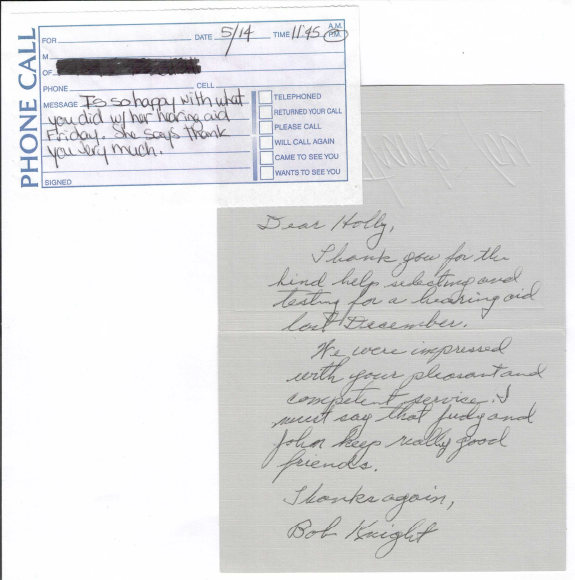 PHONE CALL
FOR DATE 5/14 TIME 11:45 A.M. P.M.
M
OF
PHONE CELL
MESSAGE Is so happy with what
you did w/ her hearing aid
Friday. She says thank
you very much.
SIGNED
TELEPHONED
RETURNED YOUR CALL
PLEASE CALL
WILL CALL AGAIN
CAME TO SEE YOU
WANTS TO SEE YOU
Dear Holly,
Thank you for the
kind help selecting and
testing for a hearing aid
last December.
We were impressed
with your pleasant and
competent service. I
must say that Judy and
John keep really good
friends.
Thanks again,
Bob Knight